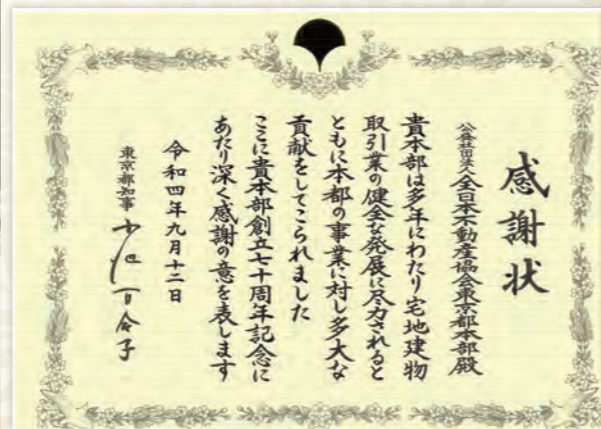 感謝状
公益社団法人全日本不動産協会東京都本部殿
貴本部は多年にわたり宅地建物
取引業の健全な発展に尽力されると
ともに本都の事業に対し多大な
貢献をしてこられました
ここに貴本部創立七十周年記念に
あたり深く感謝の意を表します
令和四年九月十二日
東京都知事 小池百合子